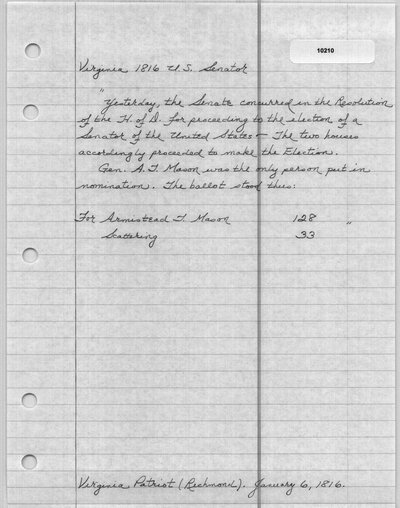 10210
Virginia 1816 U.S. Senator
"Yesterday, the Senate concurred in the Resolution
of the H. of D. for proceeding to the election of a
Senator of the United States – The two houses
accordingly proceeded to make the Election.
Gen. A. T. Mason was the only person put in
nomination. The ballot stood thus:
For Armistead T. Mason 128 "
Scattering 33
Virginia Patriot (Richmond). January 6, 1816.